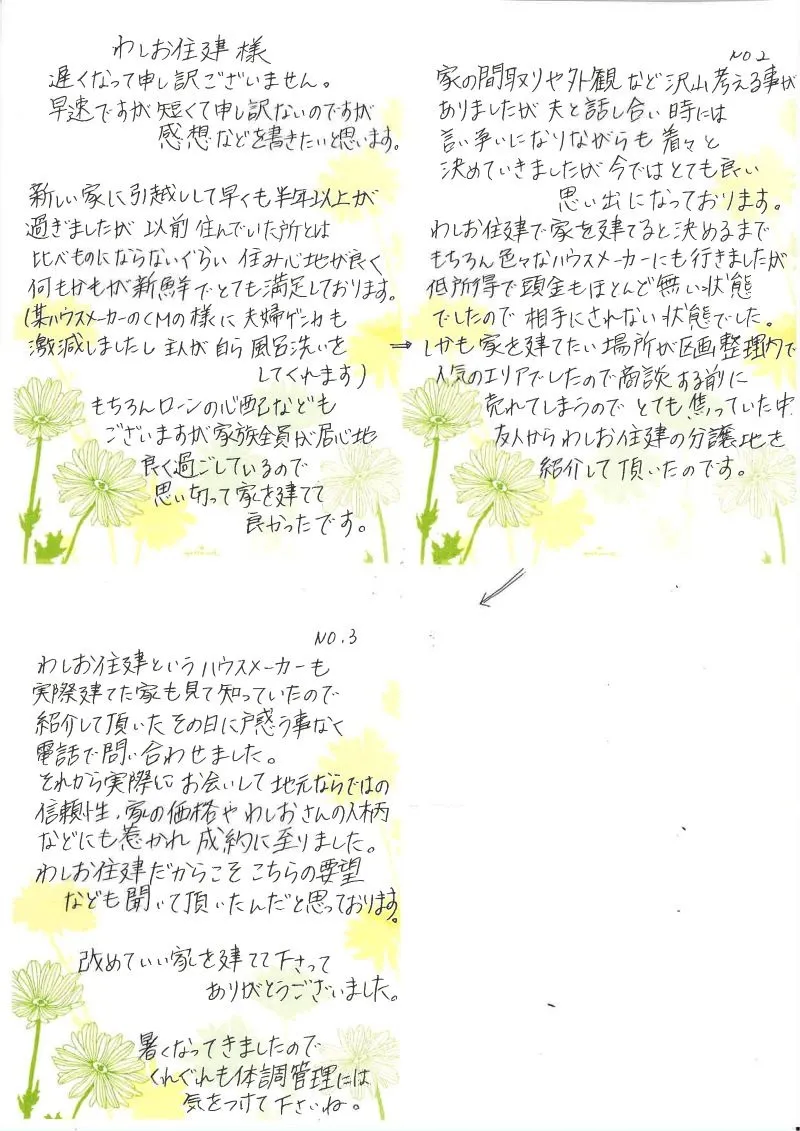 わしお住建様
遅くなって申し訳ございません。
早速ですが短くて申し訳ないのですが
感想などを書きたいと思います。
新しい家に引越しして早くも半年以上が
過ぎましたが以前住んでいた所とは
比べものにならないぐらい住み心地が良く
何もかもが新鮮でとても満足しております。
(某ハウスメーカーのCMの様に夫婦ゲンカも
激減しましたし主人が自ら風呂洗いを
してくれます)
もちろんローンの心配なども
ございますが家族全員が居心地
良く過ごしているので
思い切って家を建てて
良かったです。
⇒
NO.2
家の間取りや外観など沢山考える事が
ありましたが夫と話し合い時には
言い争いになりながらも着々と
決めていきましたが今ではとても良い
思い出になっております。
わしお住建で家を建てると決めるまで
もちろん色々なハウスメーカーにも行きましたが
低所得で頭金もほとんど無い状態
でしたので相手にされない状態でした。
しかも家を建てたい場所が区画整理内で
人気のエリアでしたので商談する前に
売れてしまうのでとても焦っていた中
友人からわしお住建の分譲地を
紹介して頂いたのです。
NO.3
わしお住建というハウスメーカーも
実際建てた家も見て知っていたので
紹介して頂いたその日に戸惑う事なく
電話で問い合わせました。
それから実際にお会いして地元ならではの
信頼性、家の価格やわしおさんの人柄
などにも惹かれ成約に至りました。
わしお住建だからこそこちらの要望
なども聞いて頂いたんだと思っております。
改めていい家を建てて下さって
ありがとうございました。
暑くなってきましたので
くれぐれも体調管理には
気をつけて下さいね。